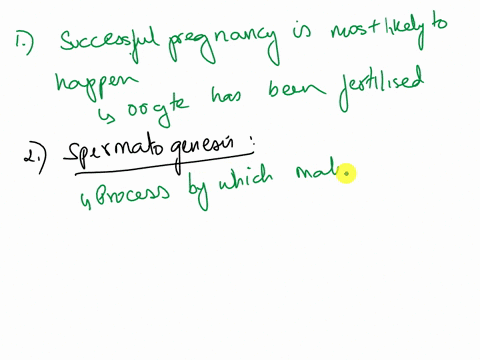 1.) Successful pregnancy is most likely to
happen
↳ oocyte has been fertilised
2.) Spermatogenesis:
↳ Process by which mal